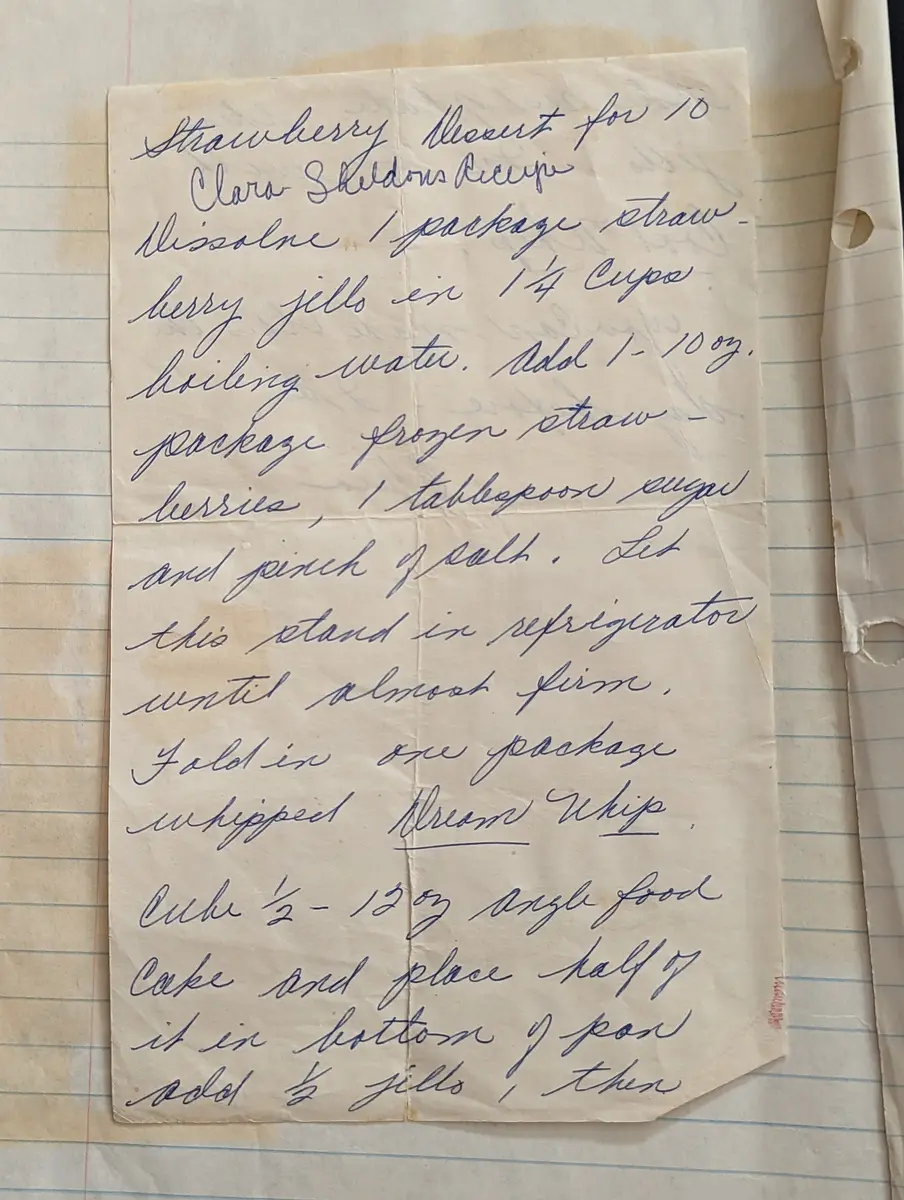 Strawberry Dessert for 10
Clara Sheldons Receipe
Dissolve 1 package straw-
berry jello in 1 1/4 Cups
boiling water. Add 1 - 10 oz.
package frozen straw-
berries, 1 tablespoon sugar
and pinch of salt. Let
this stand in refrigerator
until almost firm.
Fold in one package
whipped Dream Whip.
Cube 1/2 - 12 oz angle food
Cake and place half of
it in bottom of pan
add 1/2 jello, then